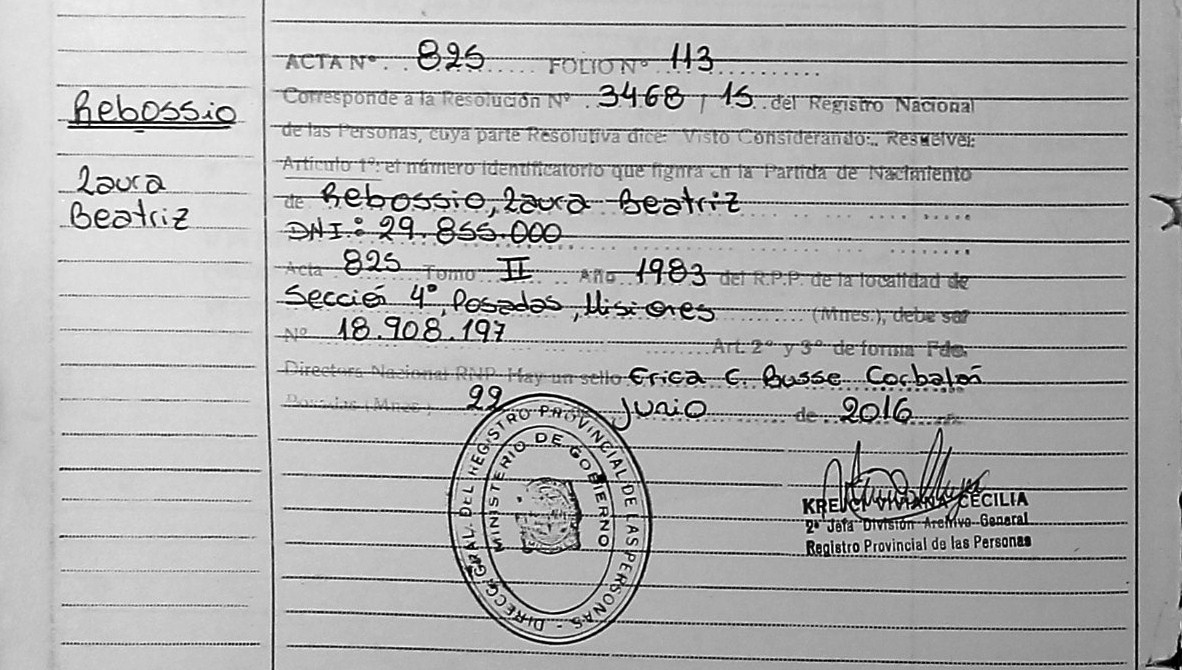 Rebossio
Laura
Beatriz
ACTA Nº 825 FOLIO Nº 113
Corresponde a la Resolución Nº 3468 / 15 del Registro Nacional
de las Personas, cuya parte Resolutiva dice: Visto Considerando:.. Resuelver:
Artículo 1º: el número identificatorio que figura en la Partida de Nacimiento
de Rebossio, Laura Beatriz
DNI: 29.855.000
Acta 825 Tomo II Año 1983 del R.P.P. de la localidad de
Sección 4º, Posadas, Misiones (Mnes.), debe ser
Nº 18.908.197 Art. 2º y 3º de forma Fdo.
Directora Nacional RNP. Hay un sello Erica C. Busse Corbalán
Posadas (Mnes.) 22 Junio de 2016
DIRECC. GRAL. DEL REGISTRO PROVINCIAL DE LAS PERSONAS -
MINISTERIO DE GOBIERNO
KREUCI VIVIANA CECILIA
2º Jefa División Archivo General
Registro Provincial de las Personas